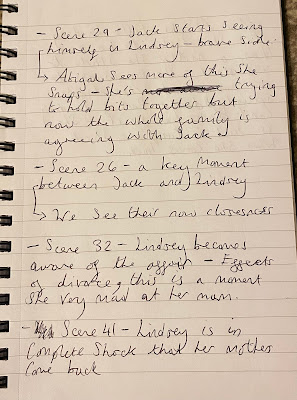 - Scene 29 - Jack Starts Seeing
himself in Lindsey - brave side.
Abigail Sees more of this She
Snaps - She's trying
to hold bits together but
now the whole family is
agreeing with Jack.
- Scene 26 - a key Moment
between Jack and Lindsey
We See their now closeness
- Scene 32 - Lindsey becomes
aware of the affair - Effects
of divorce, this is a moment
She very mad at her mum.
- Scene 41 - Lindsey is in
Complete Shock that her mother
Come back